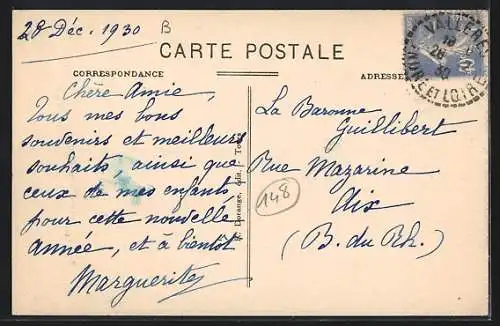 28 Déc. 1930
B
CARTE POSTALE
CORRESPONDANCE
ADRESSE
Chère Amie,
Tous mes bons
souvenirs et meilleurs
souhaits, ainsi que
ceux de mes enfants
pour cette nouvelle
année, et à bientôt
Marguerite
Dorange, édit.
La Baronne
Guillibert
Rue Mazarine
Aix
(B. du Rh.)
148
VALLÈRES
28
30
ET LOIRE